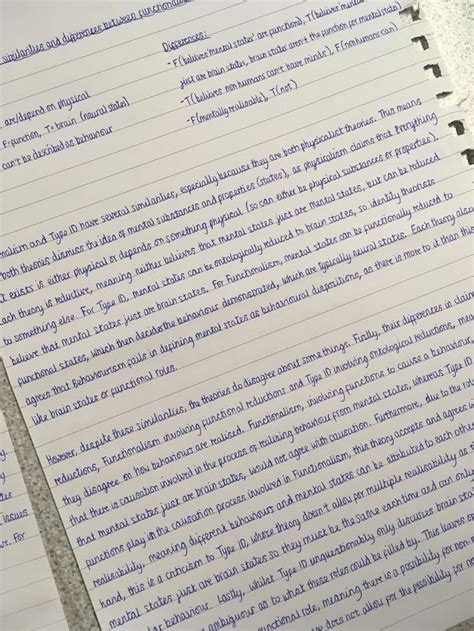 similarities and differences between functionalism
Differences:
- F(believes 'mental states' are functions), T(believes 'mental
just are brain states, brain states aren't the function per mental state)
- T(believes non humans can't have minds), F(non humans can)
- F(mentally realisable), T(not)
are/depend on physical
F=function, T=brain (neural states)
can't be described as behaviour
nalism and Type ID have several similarities, especially because they are both physicalist theories. This means
both theories dismiss the idea of mental substances and properties (states), as physicalism claims that everything
t exists is either physical or depends on something physical (so can either be physical substances or properties).
ach theory is reductive, meaning neither believes that mental states just are mental states, but can be reduced
to something else. For Type ID, mental states can be ontologically reduced to brain states, so identity theorists
believe that mental states just are brain states. For Functionalism, mental states can be functionally reduced to
functional states, which then decide the behaviour demonstrated, which are typically neural states. Each theory also
agrees that Behaviourism fails in defining mental states as behavioural dispositions, as there is more to it than this
like brain states or functional roles.
However, despite these similarities, the theories do disagree about some things. Firstly, their differences in
reductions, Functionalism involving functional reductions and Type ID involving ontological reductions,
they disagree on how behaviours are realised. Functionalism, involving functions to cause a behaviour,
that there is causation involved in the process of realising behaviour from mental states, whereas Type ID
that mental states just are brain states, would not agree with causation. Furthermore, due to the
functions play in the causation process involved in Functionalism, this theory accepts and agrees
realisability, meaning different behaviours and mental states can be attributed to each other
hand, this is a criticism to Type ID, whose theory doesn't allow for multiple realisability as
mental states just are brain states so they must be the same each time and can only
lar behaviour. Lastly, whilst Type ID unquestionably only discusses brain
ambiguous as to what these roles could be filled by. This leaves
functional role, meaning there is a possibility for non-
does not allow for the possibility for
issues
e. For